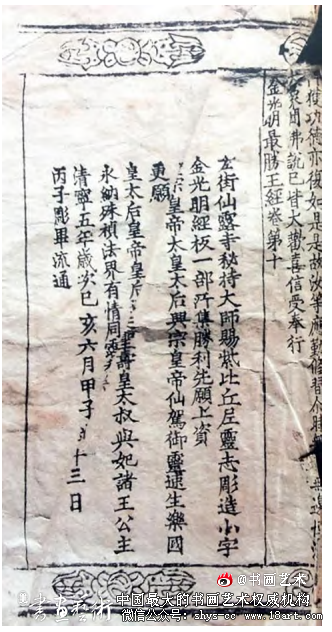 功德亦復如是是故汝等應勤修習
衆聞佛說已皆大歡喜信受奉行
金光明最勝王經卷第十
玄街仙露寺秘持大師賜紫比丘尼靈志彫造小字
金光明經板一部所集勝利先願上資
皇帝太皇太后興宗皇帝仙駕御靈速生樂國
更願
皇太后皇帝皇后 壽皇太叔與妃諸王公主
永納殊禎法界有情同霑
清寧五年歲次巳亥六月甲子 十三日
丙子彫畢流通
@书画艺术
書畫藝術
中国最大的书画艺术权威机构
微信公众号:shys-cctv www.18art.com